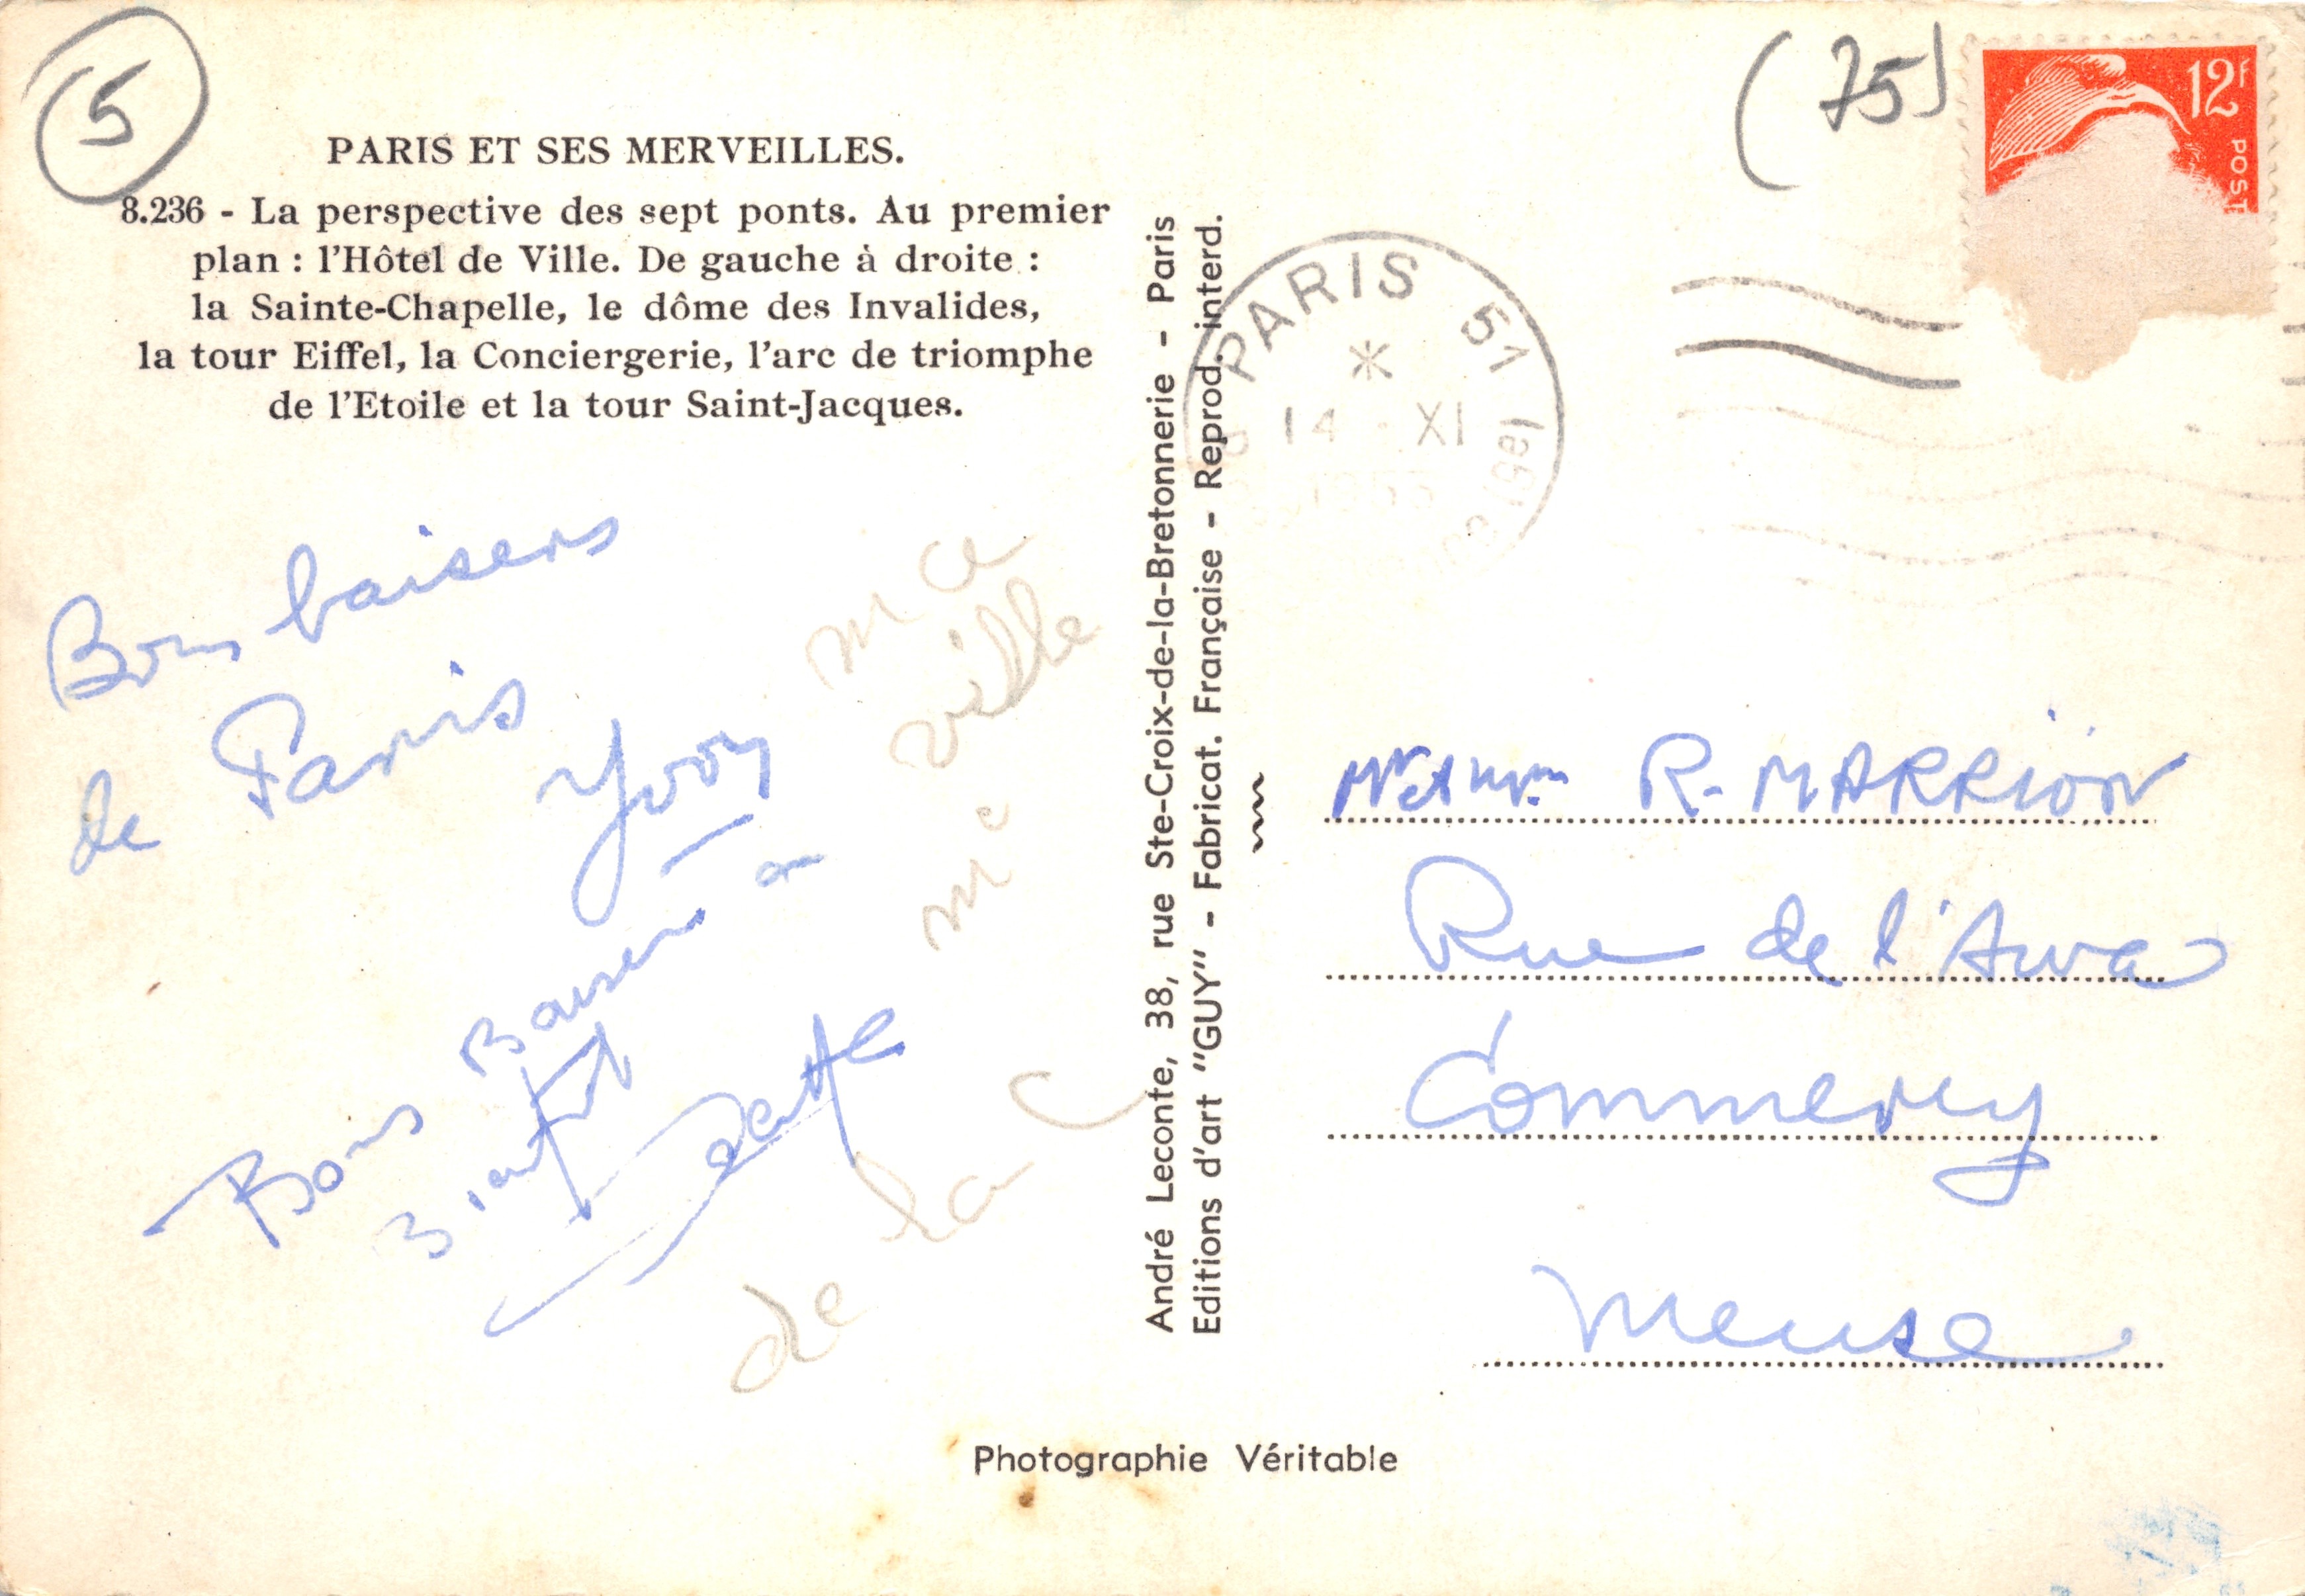 5
(75)
12f
POST
PARIS ET SES MERVEILLES.
8.236 - La perspective des sept ponts. Au premier
plan : l'Hôtel de Ville. De gauche à droite :
la Sainte-Chapelle, le dôme des Invalides,
la tour Eiffel, la Conciergerie, l'arc de triomphe
de l'Etoile et la tour Saint-Jacques.
PARIS 51
14 - XI
Bons baisers
de Paris
Yvon
Bons Baisers
ce
ville
de la
André Leconte, 38, rue Ste-Croix-de-la-Bretonnerie - Paris
Editions d'art "GUY" - Fabricat. Française - Reprod. interd.
Mr et Mme R. MARRION
Rue de l'
Commercy
Meuse
Photographie Véritable